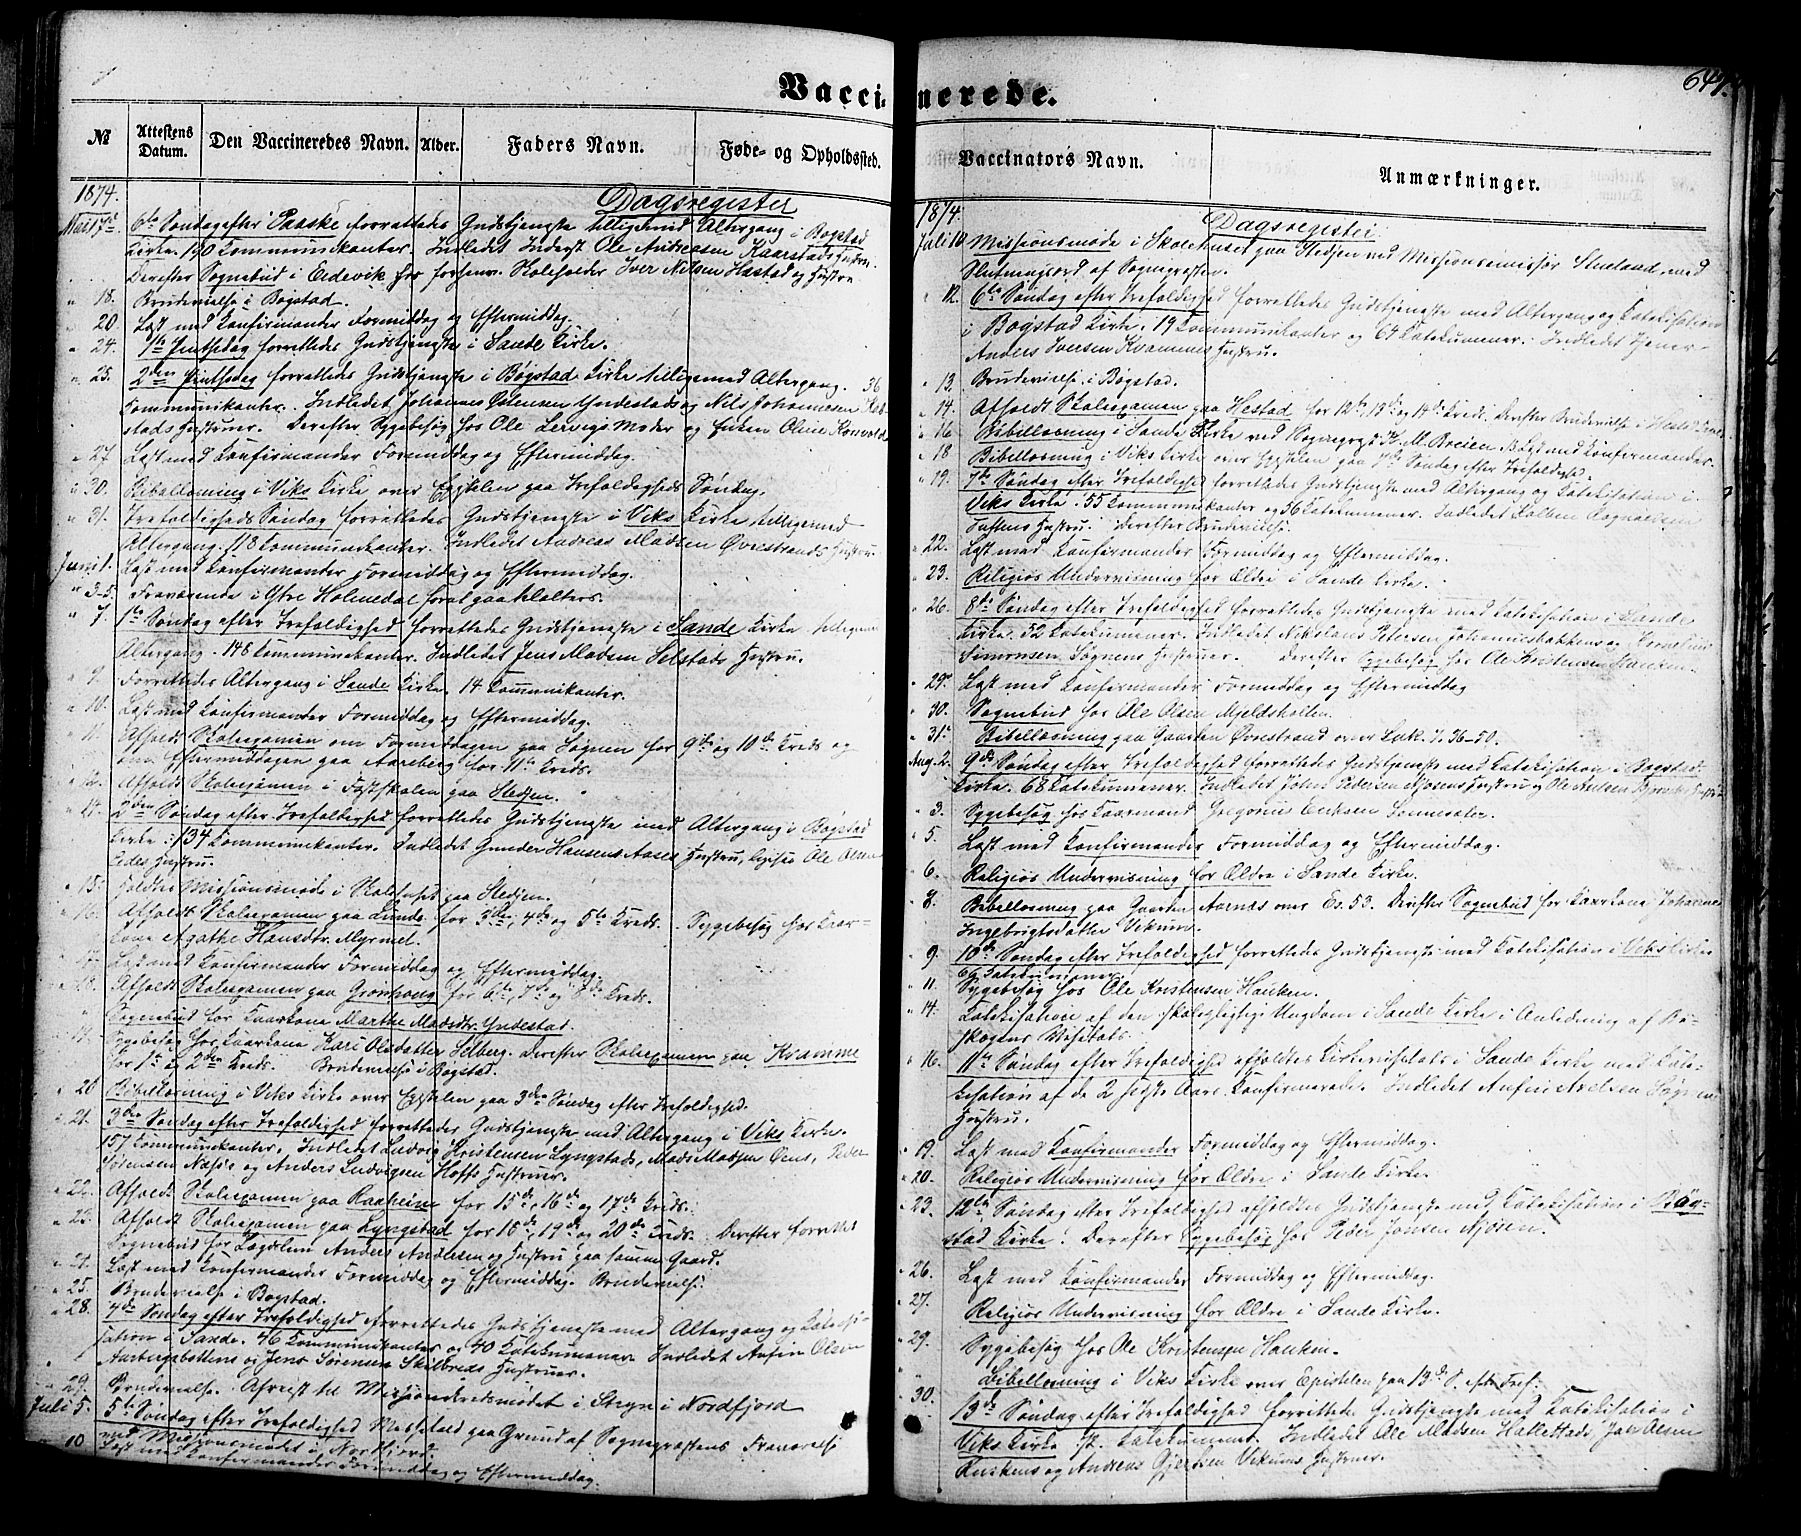 Vaccinerede.
649.
№
Attestens Datum.
Den Vaccineredes Navn.
Alder.
Faders Navn.
Føde- og Opholdssted.
1874. Dagsregister
17de 6te Søndag efter Paaske forrettedes Gudstjenste tilligemed Altergang i Bøgstad
Kirke. 190 Kommunikanter. Indledet Inderst Ole Andreasen Kaarstads Hustru.
Derefter Sognebud i Eedevik hos forhenv. Skoleholder Iver Nilsen Hastad og Hustru
" 18. Brudevielse i Bøgstad.
" 20 Læst med Konfirmander Formiddag og Eftermiddag.
" 24. 1ste Pintsedag forrettedes Gudstjenste i Sande Kirke.
" 25. 2den Pintsedag forrettedes Gudstjenste i Bøgstad Kirke tilligemed Altergang. 36
Kommunikanter. Indledet Johannes Østensen Yndestads og Nils Johannesen
stads Hustruer. Derefter Sygebesøg hos Ole Lervigs Moder og Enken Oline
" 27 Læst med Konfirmander Formiddag og Eftermiddag.
" 30. Bibellæsning i Viks Kirke over Epistelen paa Trefoldigheds Søndag.
" 31. Trefoldigheds Søndag forrettedes Gudstjenste i Viks Kirke tilligemed
Altergang. 118 Kommunikanter. Indledet Andreas Madsen Øvrestrands Hustru.
Juni 1. Læst med Konfirmander Formiddag og Eftermiddag.
" 3-5. Fraværende i Ytre Holmedal
" 7. 1ste Søndag efter Trefoldighed forrettedes Gudstjenste i Sande Kirke tilligemed
Altergang. 148 Kommunikanter. Indledet Jens Madsen Selstads Hustru.
" 9. Forrettedes Altergang i Sande Kirke. 14 Kommunikanter.
" 10. Læst med Konfirmander Formiddag og Eftermiddag.
" 11. Afholdt Skoleexamen om Formiddagen paa Søgnen for 9de og 10de Kreds og
om Eftermiddagen paa Aareberg for 11te Kreds.
" 12. Afholdt Skoleexamen i Fastskolen paa Stedjen.
" 14. 2den Søndag efter Trefoldighed forrettedes Gudstjenste med Altergang i Bøgstad
Kirke. 134 Kommunikanter. Indledet Gunder Hansens Hustru, Ole Olsen
Hustru.
" 15. Holdtes Missionsmøde i Skolehuset paa Stedjen.
" 16. Afholdt Skoleexamen paa Lunde for 3die, 4de og 5te Kreds. Sygebesøg hos Kaar-
kone Agathe Hansdtr. Myrmel.
" 17. Læst med Konfirmander Formiddag og Eftermiddag.
" 18. Afholdt Skoleexamen paa Grønhaug for 6te, 7de og 8de Kreds.
Sognebud for Kaarkone Marthe Madsdtr. Yndestad.
" 19. Sygebesøg hos Kaarkone Kari Olsdatter Selberg. Derefter Skoleexamen paa Kvamme
for 1ste og 2den Kreds. Brudevielse i Bøgstad.
" 20 Bibellæsning i Viks Kirke over Epistelen paa 3die Søndag efter Trefoldighed.
" 21. 3die Søndag efter Trefoldighed forrettedes Gudstjenste med Altergang i Viks Kirke.
157 Kommunikanter. Indledet Ludvig Kristensen Lyngstads, Mads Madsen Øens, Peder
Sørensen og Anders Ludvigsen Hofs Hustruer.
" 22. Afholdt Skoleexamen paa Raaheim for 15de, 16de og 17de Kreds.
" 23. Afholdt Skoleexamen paa Lyngstad for 18de, 19de og 20de Kreds. Derefter forrettet
Sognebud for Anders Andersen og Hustru paa samme Gaard.
" 24. Læst med Konfirmander Formiddag og Eftermiddag. Brudevielse.
" 25. Brudevielse i Bøgstad.
" 28. 4de Søndag efter Trefoldighed forrettedes Gudstjenste med Altergang og Kateki-
sation i Sande. 46 Kommunikanter og 40 Katekumener. Indledet Anfin Olsen
Aarbergsbottens og Jens Sørensen Skilbreds Hustruer.
" 29. Brudevielse. Afreist til Missionskredsmødet i Stryn i Nordfjord
Juli 5. 5te Søndag efter Trefoldighed Messefald paa Grund af Sognepræstens Fraværelse
ved Missionsmødet i Nordfjord
" 10 Læst med Konfirmander Formiddag og Eftermiddag.
Vaccinators Navn.
Anmærkninger.
1874. Dagsregister.
Juli 10 Missionsmøde i Skolehuset paa Stedjen ved Missionsemissær med
Slutningsord af Sognepræsten.
" 12. 6te Søndag efter Trefoldighed forrettedes Gudstjenste med Altergang og Katekisation
i Bøgstad Kirke. 19 Kommunikanter og 64 Katekumener. Indledet
Anders Iversen Kvammes Hustru.
" 13. Brudevielse i Bøgstad.
" 14. Afholdt Skoleexamen paa Hestad for 12te, 13de og 14de Kreds. Derefter Brudevielse i Hestad
" 16 Bibellæsning i Sande Kirke ved Sognepræst M. Breien. Læst med Konfirmander.
" 18 Bibellæsning i Viks Kirke over Epistelen paa 7de Søndag efter Trefoldighed.
" 19. 7de Søndag efter Trefoldighed forrettedes Gudstjenste med Altergang og Katekisation i
Viks Kirke. 55 Kommunikanter og 36 Katekumener. Indledet
Hustru. Derefter Brudevielse.
" 22. Læst med Konfirmander Formiddag og Eftermiddag.
" 23. Religiøs Undervisning for Ældre i Sande Kirke.
" 26. 8de Søndag efter Trefoldighed forrettedes Gudstjenste med Katekisation i Sande
Kirke. 52 Katekumener. Indledet Nikolaus Petersen Johannisbakkens og Kornelius
Simonsen Søgnens Hustruer. Derefter Sygebesøg hos Ole Kristensen Hauken.
" 29. Læst med Konfirmander Formiddag og Eftermiddag
" 30. Sognebud hos Ole Olsen Mjeldsholten.
" 31te Bibellæsning paa Gaarden Øvrestrand over Luk. 7. 36-50.
Aug. 2. 9de Søndag efter Trefoldighed forrettedes Gudstjenste med Katekisation i Bøgstad
Kirke. 68 Katekumener. Indledet Johan Pedersen Mjøsens Hustru og Ole
" 3. Sygebesøg hos Kaarmand Gregorius Eriksen
" 5. Læst med Konfirmander Formiddag og Eftermiddag.
" 6. Religiøs Undervisning for Ældre i Sande Kirke.
" 8. Bibellæsning paa Gaarden Aarnæs over Es. 53. Derefter Sognebud for Kaarkone Johanne
Ingebrigtsdatter Vikum.
" 9. 10de Søndag efter Trefoldighed forrettedes Gudstjenste med Katekisation i Viks Kirke
66 Katekumener.
" 11. Sygebesøg hos Ole Kristensen Hauken.
" 14. Katekisation af den skolepligtige Ungdom i Sande Kirke i Anledning af Bi-
skopens Visitats.
" 16. 11te Søndag efter Trefoldighed afholdtes Kirkevisitats i Sande Kirke med Kate-
kisation af de 2 sidste Aars Konfirmerede. Indledet Anfin Axelsen Søgnens
Hustru.
" 19. Læst med Konfirmander Formiddag og Eftermiddag.
" 20. Religiøs Undervisning for Ældre i Sande Kirke.
" 23. 12te Søndag efter Trefoldighed afholdtes Gudstjenste med Katekisation i Bøg-
stad Kirke. Derefter Sygebesøg hos Peder Jonsen Mjøsen.
" 26. Læst med Konfirmander Formiddag og Eftermiddag.
" 27. Religiøs Undervisning for Ældre i Sande Kirke.
" 29. Sygebesøg hos Ole Kristensen Hauken.
" Bibellæsning i Viks Kirke over Epistelen paa 13de S. efter Tref.
" 30. 13de Søndag efter Trefoldighed forrettedes Gudstjenste med Katekisation i
Viks Kirke. Katekumener. Indledet Ole Madsen Hallestads, Olsen
og Andreas Vikums Hustruer.